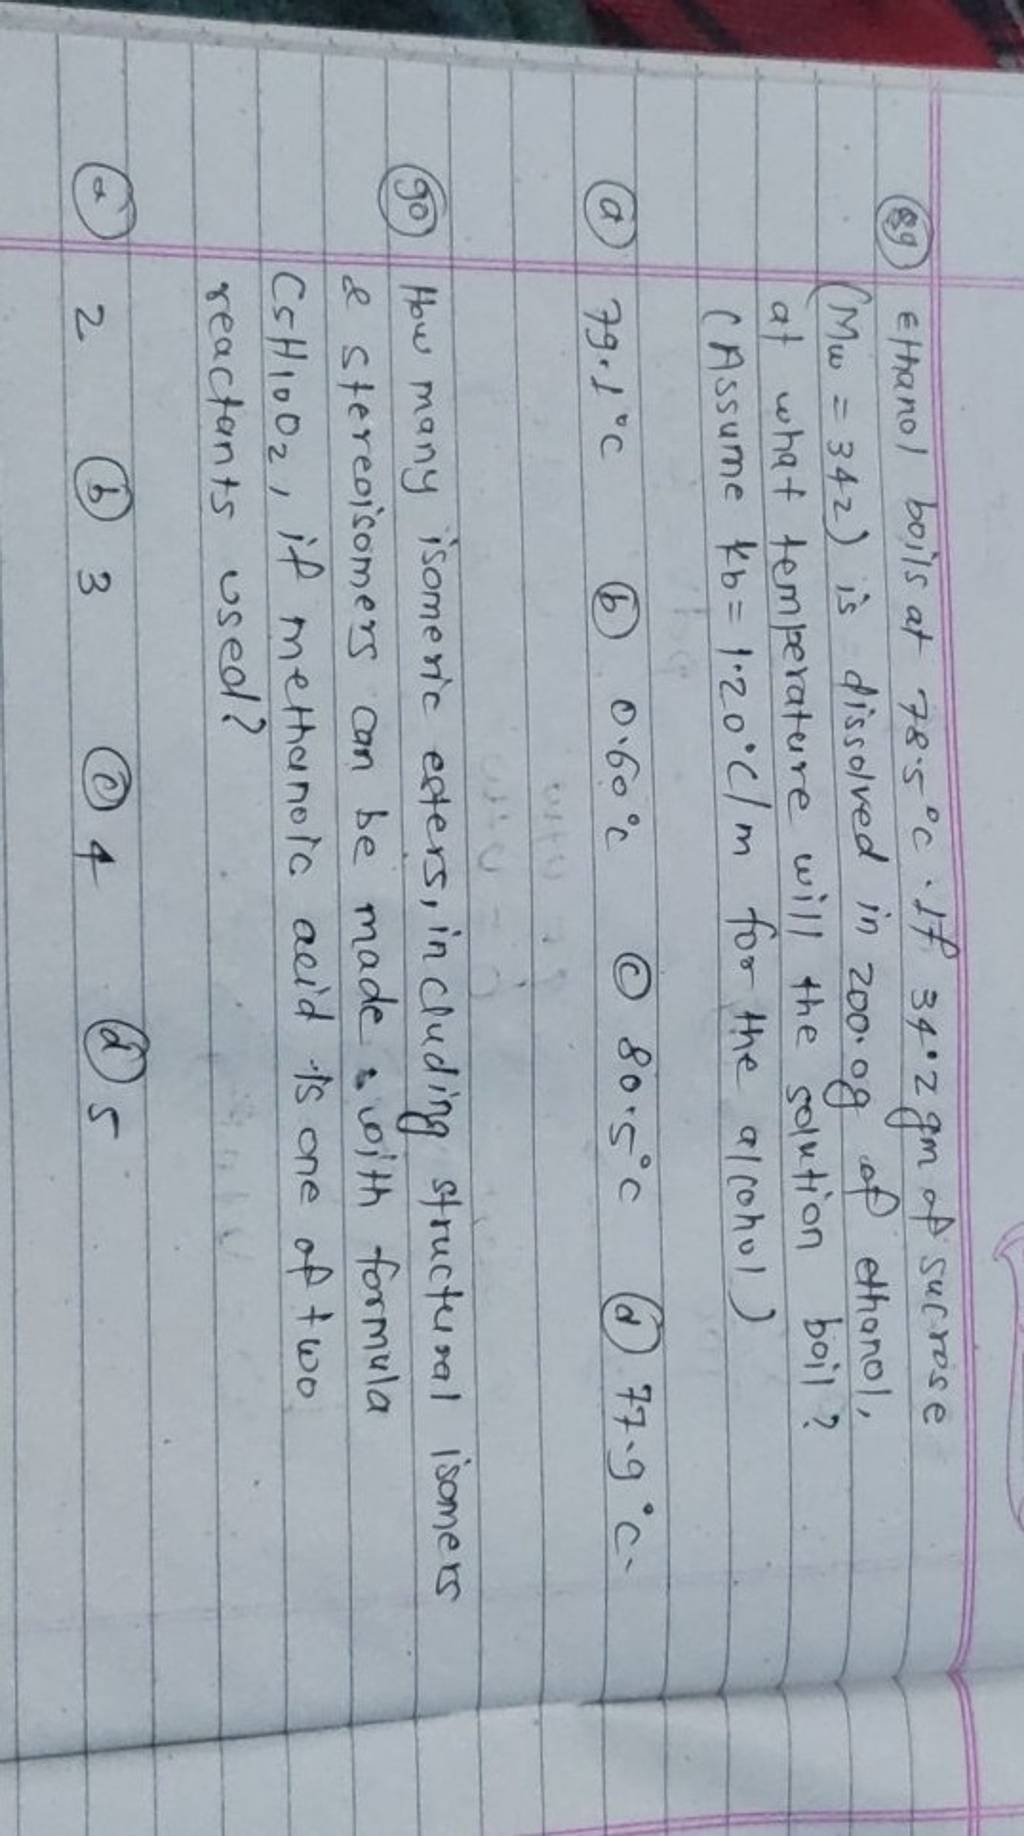 89 Ethanol boils at 78.5°c. If 34.2 gm of sucrose
(Mw = 342) is dissolved in 200.0g of ethanol,
at what temperature will the solution boil?
(Assume kb = 1.20°C/m for the alcohol)
a 79.1°c b 0.60°c c 80.5°c d 77.9°c.
90 How many isomeric esters, including structural isomers
& stereoisomers can be made with formula
C5H10O2, if methanoic acid is one of two
reactants used?
a 2 b 3 c 4 d 5